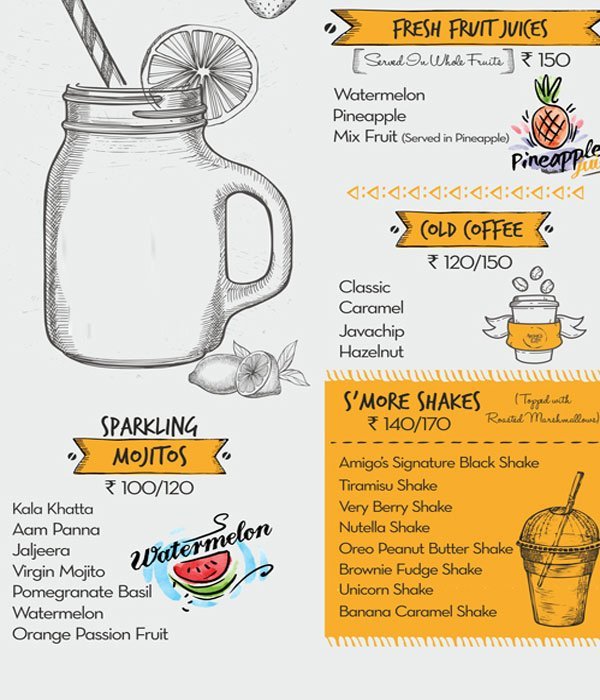 FRESH FRUIT JUICES
Served In Whole Fruits ₹ 150
Watermelon
Pineapple
Mix Fruit (Served in Pineapple)
Pineapple
COLD COFFEE
₹ 120/150
Classic
Caramel
Javachip
Hazelnut
S'MORE SHAKES
₹ 140/170
(Topped with
Roasted Marshmallows)
Amigo's Signature Black Shake
Tiramisu Shake
Very Berry Shake
Nutella Shake
Oreo Peanut Butter Shake
Brownie Fudge Shake
Unicorn Shake
Banana Caramel Shake
SPARKLING
MOJITOS
₹ 100/120
Kala Khatta
Aam Panna
Jaljeera
Virgin Mojito
Pomegranate Basil
Watermelon
Orange Passion Fruit
Watermelon